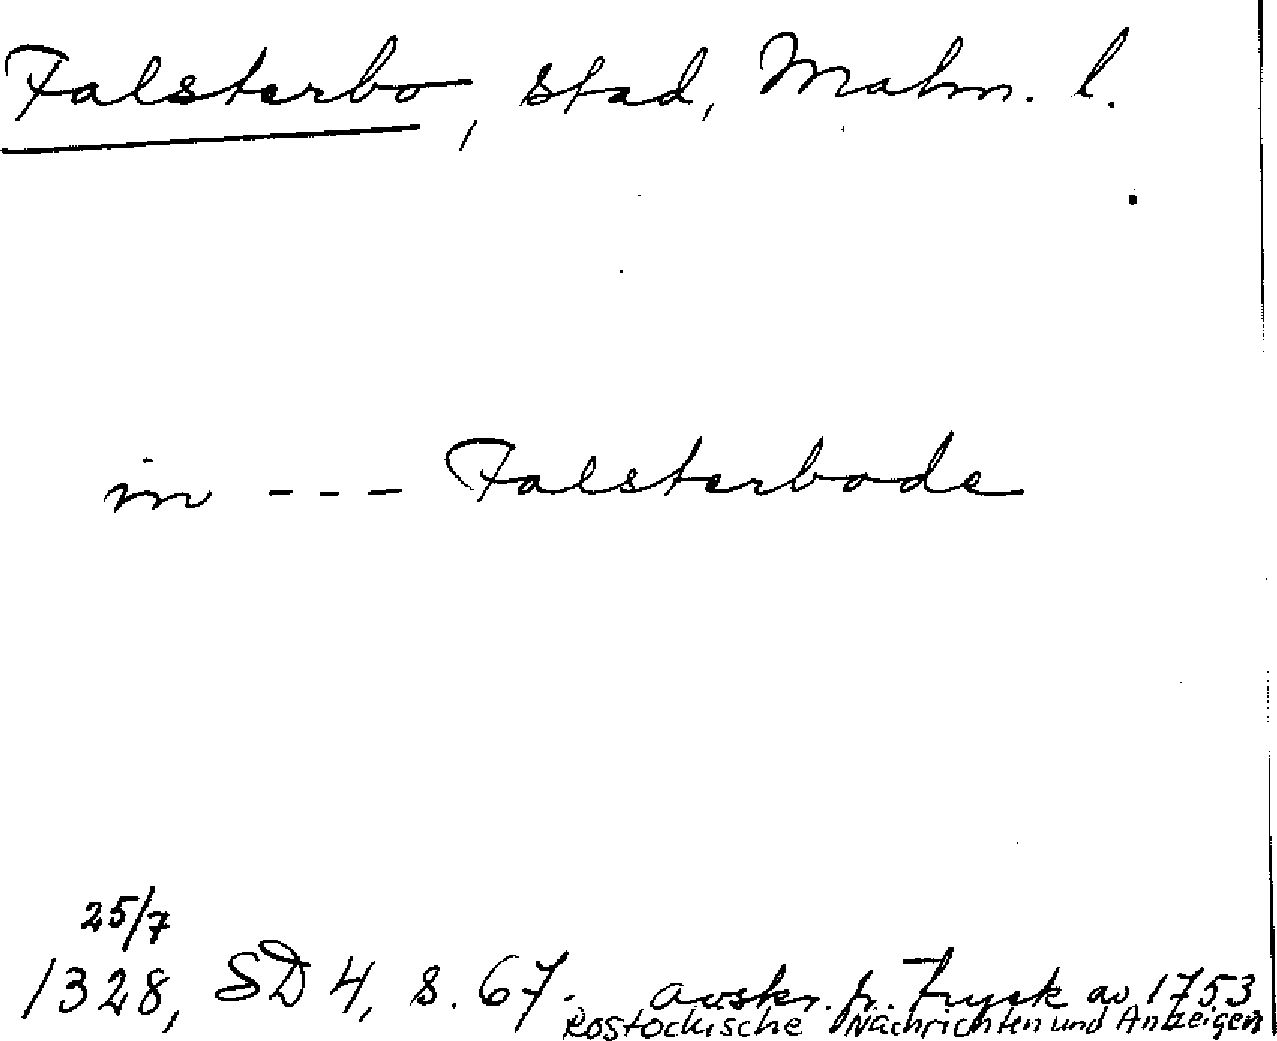 Falsterbo, stad, Malm. l.
in --- Falsterbode
25/7
1328, SD 4, s. 67. avskr. fr. Tryck av 1753
Rostockische Nachrichten und Anzeigen